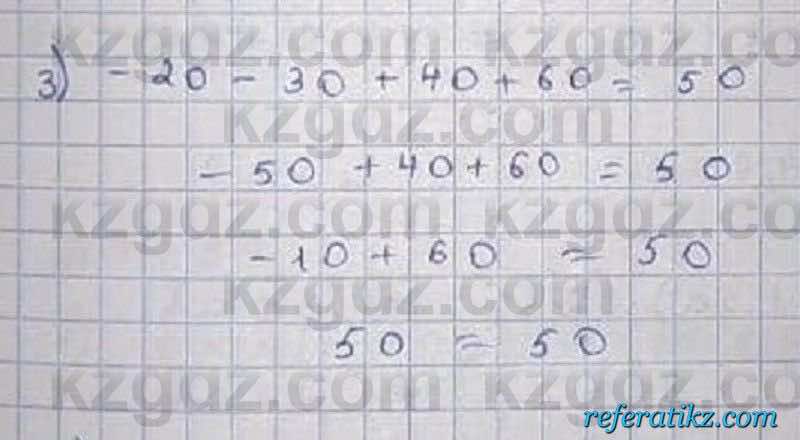 kzgaz.com kzgaz.com
3) - 20 - 30 + 40 + 60 = 50
kzgaz.com
- 50 + 40 + 60 = 50
kzgaz.com kzgaz.com
- 10 + 60 = 50
kzgaz.com
50 = 50
kzgaz.com kzgaz.com
referatikz.com